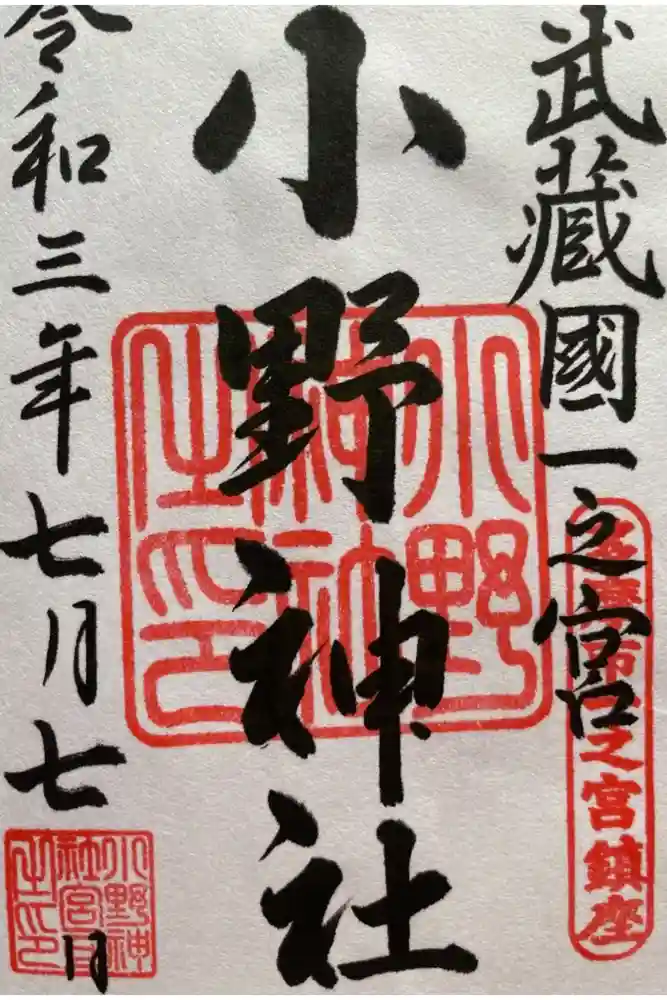 武蔵國一之宮
多摩市一之宮鎮座
小野神社
小野神社之印
令和三年七月七日
小野神社宮司之印